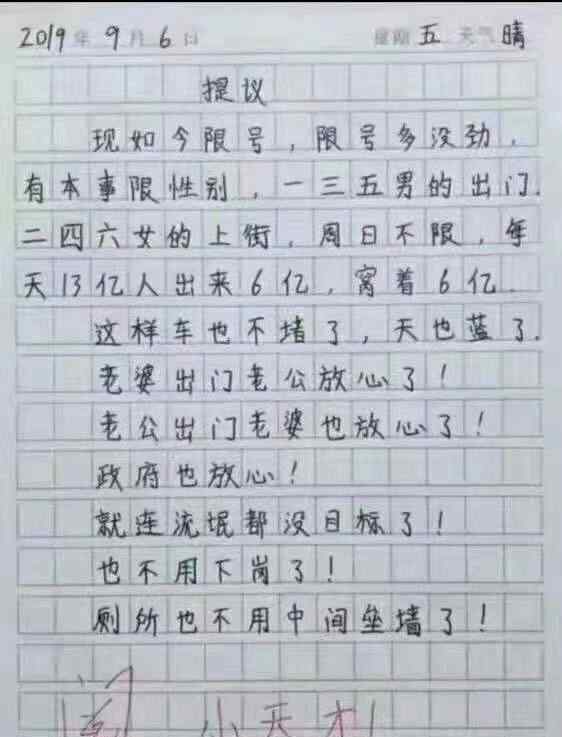 2019年9月6日 星期 五 天气 晴
提议
现如今限号，限号多没劲，
有本事限性别，一三五男的出门.
二四六女的上街，周日不限，每
天13亿人出来6亿，窝着6亿.
这样车也不堵了，天也蓝了.
老婆出门老公放心了！
老公出门老婆也放心了！
政府也放心！
就连流氓都没目标了！
也不用下岗了！
厕所也不用中间垒墙了！
阅 小天才